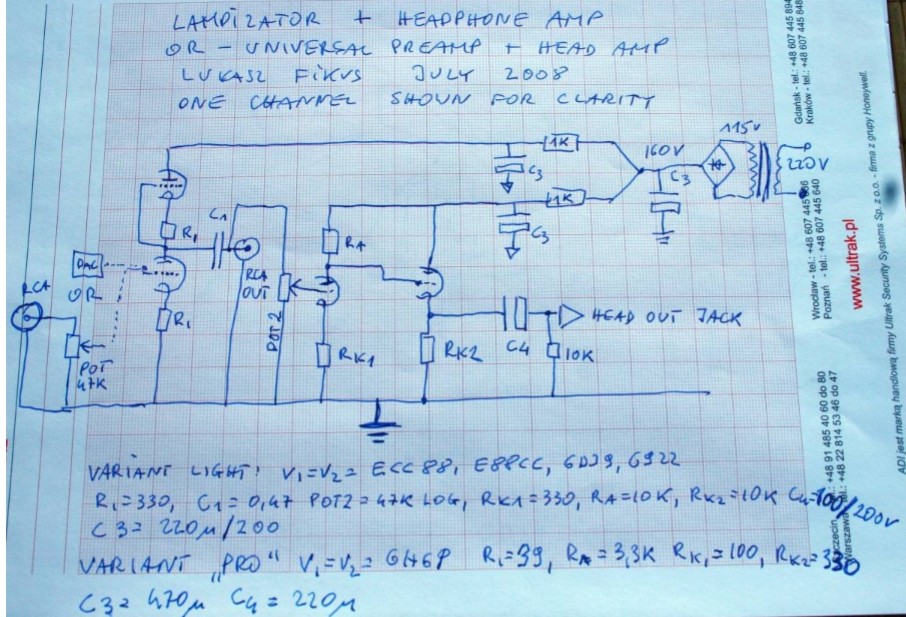 LAMPIZATOR + HEADPHONE AMP
OR - UNIVERSAL PREAMP + HEAD AMP
LUKASZ FIKUS JULY 2008
ONE CHANNEL SHOWN FOR CLARITY
1K
160V
115V
220V
C3
C3
1K
C3
C1
R1
RA
DAC
OR
RCA
RCA OUT
POT 2
R1
POT
47K
RK1
RK2
C4
10K
HEAD OUT JACK
VARIANT LIGHT: V1=V2= ECC88, E88CC, 6DJ9, 6922
R1=330, C1=0,47 POT2=47K LOG, RK1=330, RA=10K, RK2=10K C4=100/200V
C3=220μ/200
VARIANT „PRO“ V1=V2= 6H6P R1=39, RA=3,3K RK1=100, RK2=330
C3=470μ C4=220μ
Gdańsk - tel.: +48 607 445 894
Kraków - tel.: +48 607 445 848
Wrocław - tel.: +48 607 445
Poznań - tel.: +48 607 445 640
www.ultrak.pl
: +48 91 485 40 60 do 80
tel.: +48 22 814 53 46 do 47
ADI jest marką handlową firmy Ultrak Security Systems Sp. z o.o. - firma z grupy Honeywell.